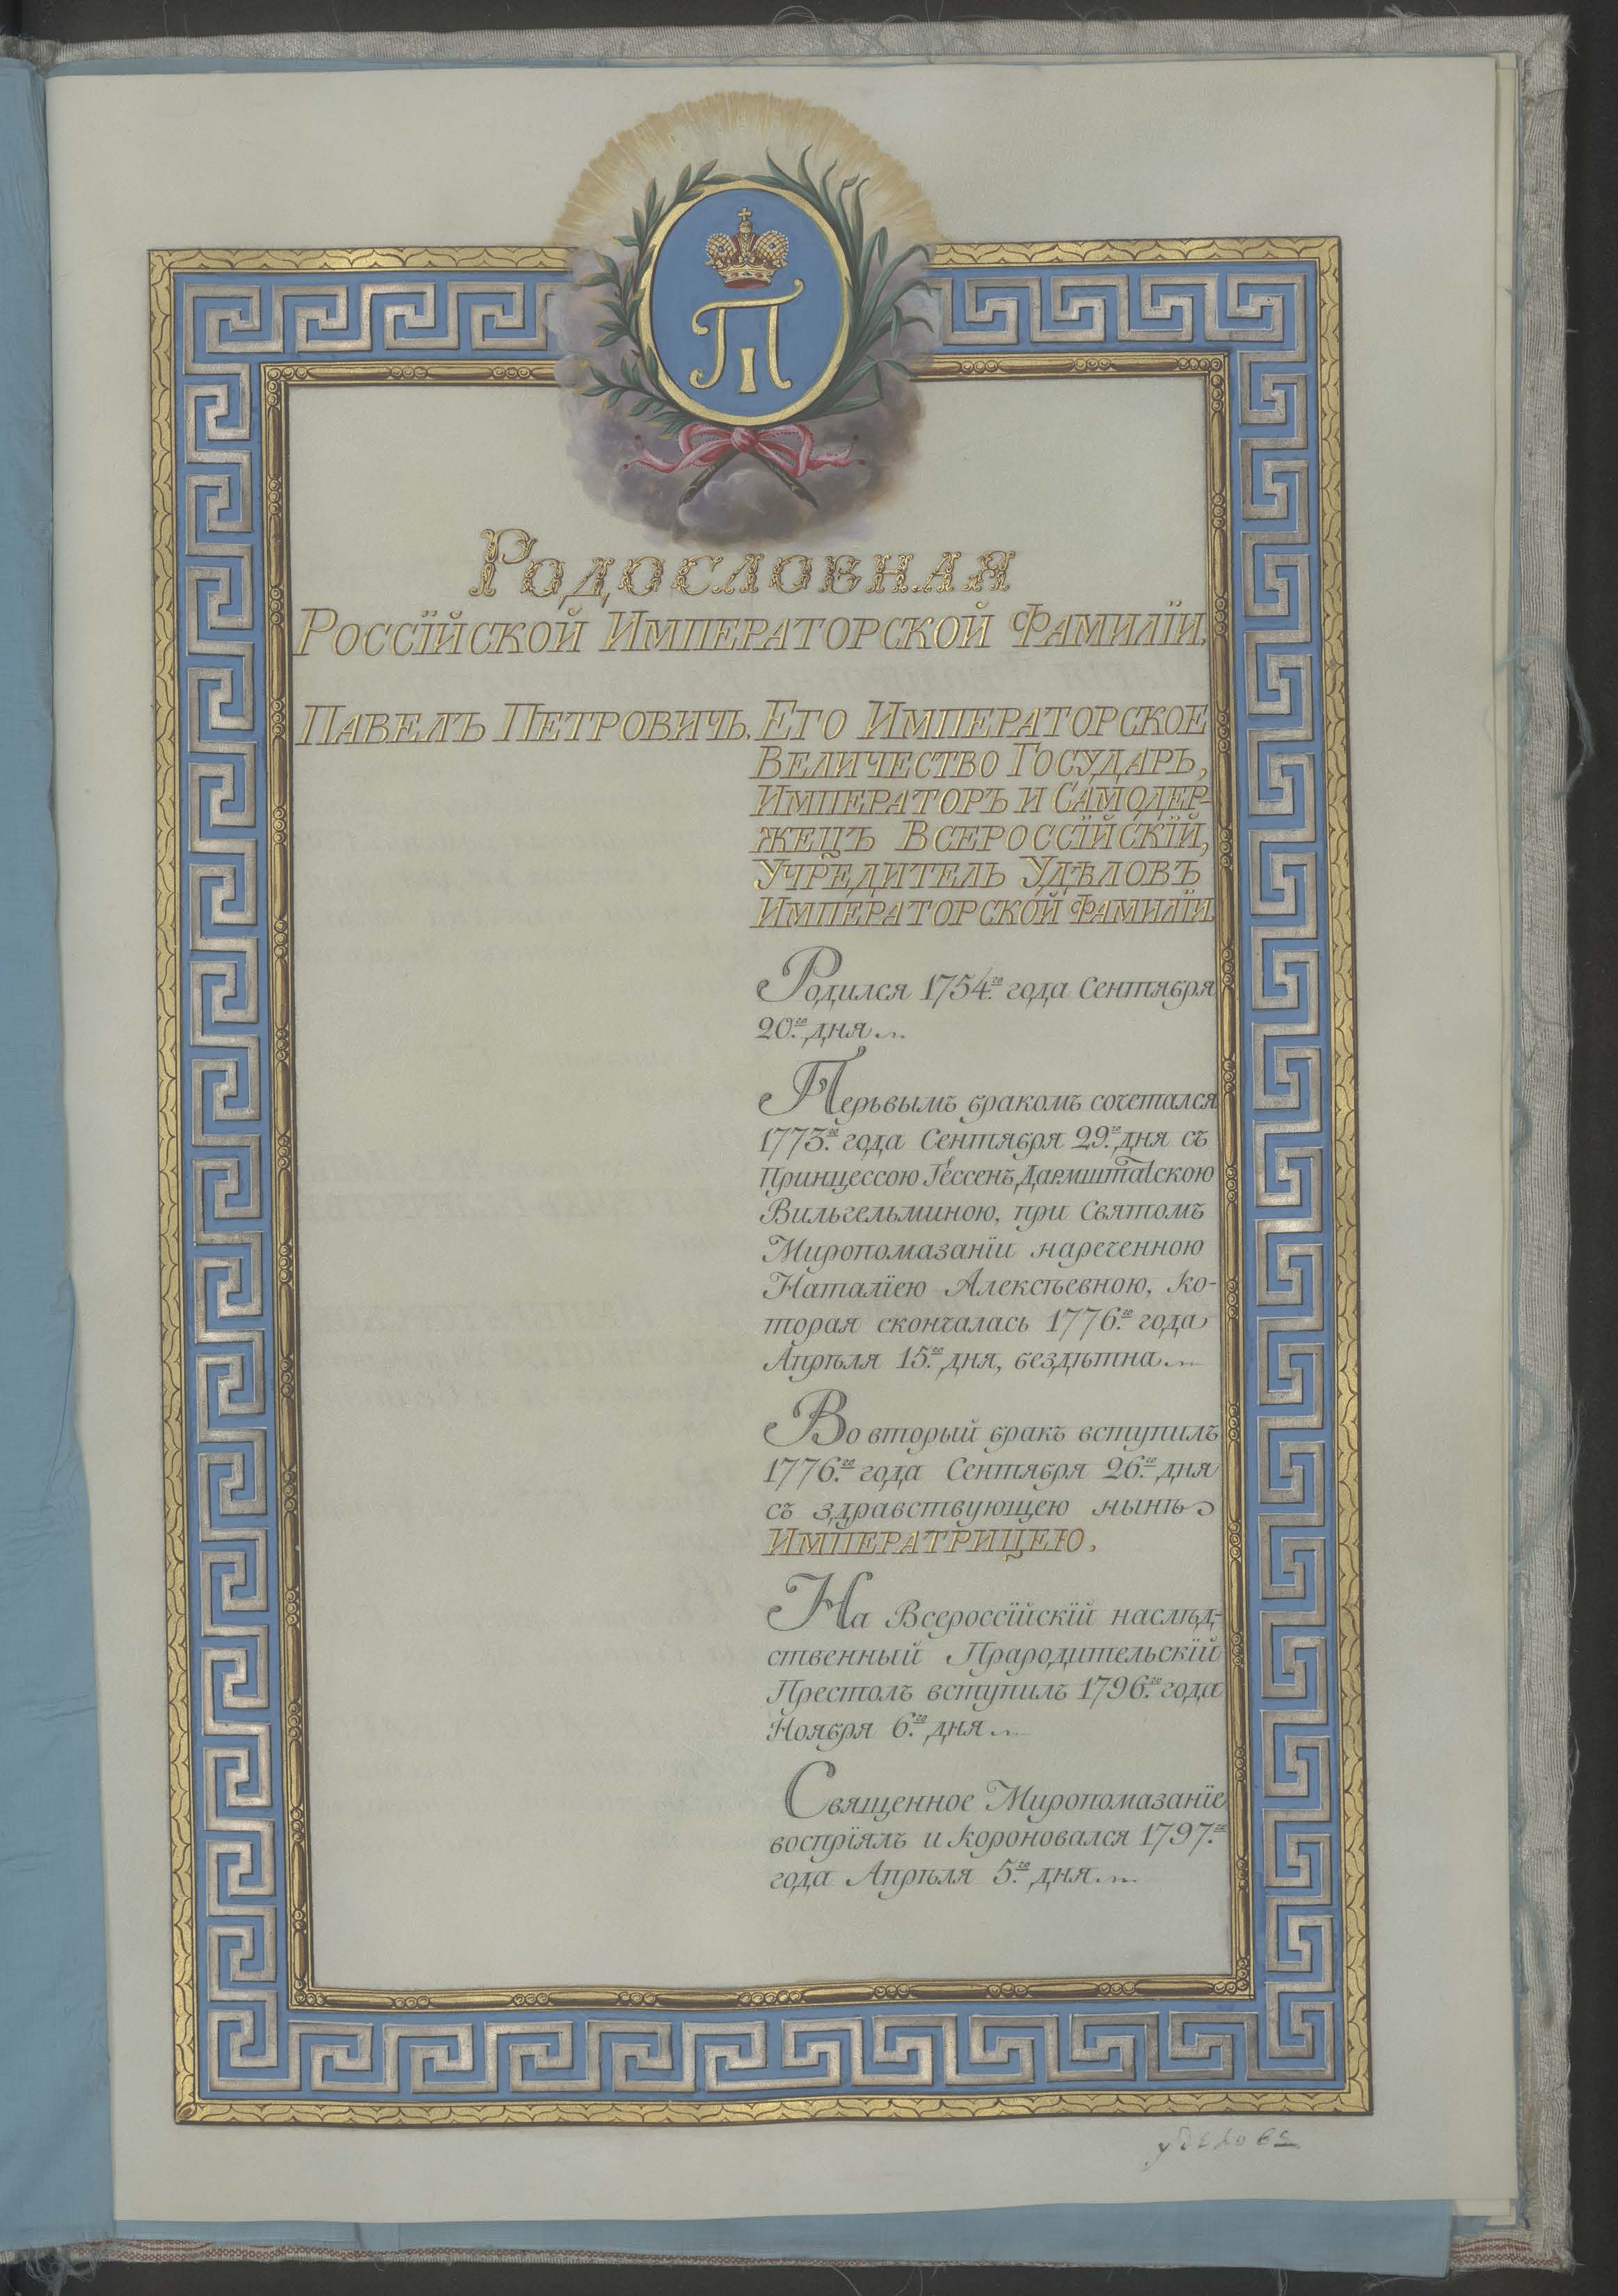 П I
Родословная
Россїйской Императорской Фамилїи.
Павелъ Петровичь. Его Императорское
Величество Государь,
Императоръ и Самодер-
жецъ Всероссїйскїй,
Учредитель Удѣловъ
Императорской Фамилїи.
Родился 1754.го года Сентября
20.го дня.
Перьвымъ бракомъ сочетался
1773.го года Сентября 29.го дня съ
Принцессою Гессенъ Дармштатскою
Вильгельминою, при Святомъ
Миропомазанїи нареченною
Наталїею Алексѣевною, ко-
торая скончалась 1776.го года
Апрѣля 15.го дня, бездѣтна.
Во вторый бракъ вступилъ
1776.го года Сентября 26.го дня
съ здравствующею нынѣ
Императрицею.
На Всероссїйскїй наслѣд-
ственный Прародительскїй
Престолъ вступилъ 1796.го года
Ноября 6.го дня.
Священное Миропомазанїе
воспрїялъ и короновался 1797.го
года Апрѣля 5.го дня.